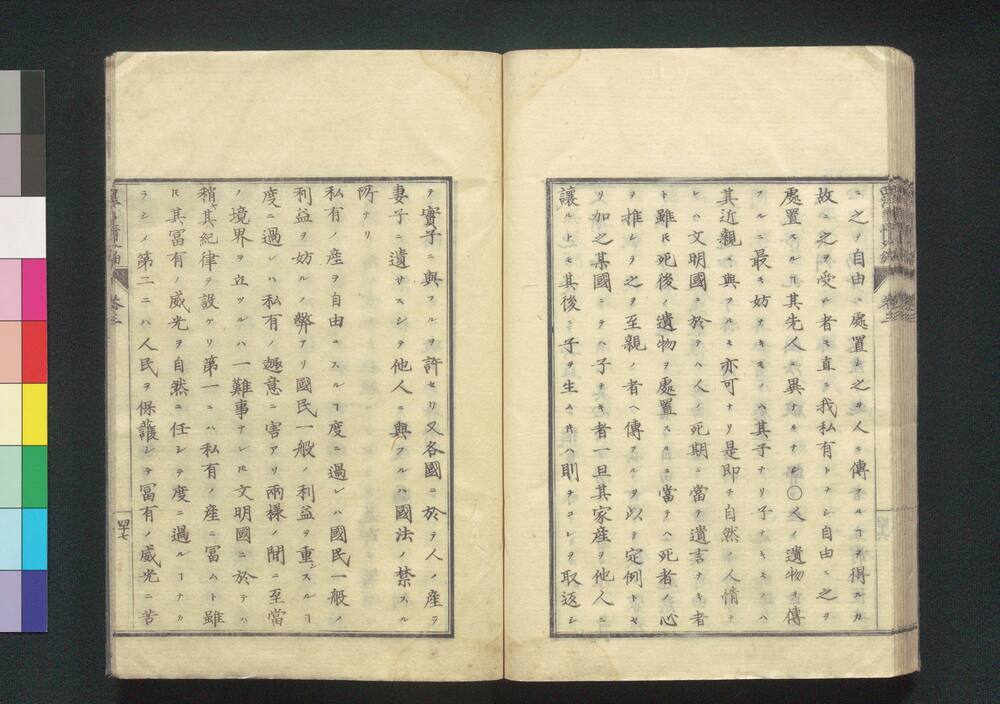 ニ之ヲ自由ニ處置シ之ヲ人ニ傳フルヿヲ得ルカ
故ニ之ヲ受ル者モ直ニ我私有トナシ自由ニ之ヲ
處置スルヿ其先人ニ異ナルナシ〇人ノ遺物ヲ傳
フルニ最モ妨ナキモノハ其子ナリ子ナキモノハ
其近親ニ與フルモ亦可ナリ是即チ自然ノ人情ナ
レハ文明國ニ於テハ人ノ死期ニ當テ遺言ナキ者
ト雖𪜈死後ノ遺物ヲ處置スルニ當テハ死者ノ心
ヲ推シテ之ヲ至親ノ者ヘ傳フルヲ以テ定例トセ
リ加之某國ニテハ子ナキ者一旦其家産ヲ他人ニ
讓ルトモ其後ニ子ヲ生ムハ則チコレヲ取返シ
ヲ實子ニ與フルヲ許セリ又各國ニ於テ人ノ産ヲ
妻子ニ遺サスシテ他人ニ與フルハ國法ノ禁スル
所ナリ
私有ノ産ヲ自由ニスルヿ度ニ過レハ國民一般ノ
利益ヲ妨ルノ弊アリ國民一般ノ利益ヲ重スルヿ
度ニ過レハ私有ノ趣意ニ害アリ兩樣ノ間ニ至當
ノ境界ヲ立ツルハ一難事ナレ𪜈文明國ニ於テハ
稍其紀律ヲ設ケリ第一ニハ私有ノ産ニ冨ムト雖
𪜈其冨有ノ威光ヲ自然ニ任シテ度ニ過ルヿナカ
ラシメ第二ニハ人民ヲ保護シテ冨有ノ威光ニ苦
卷三
四十七